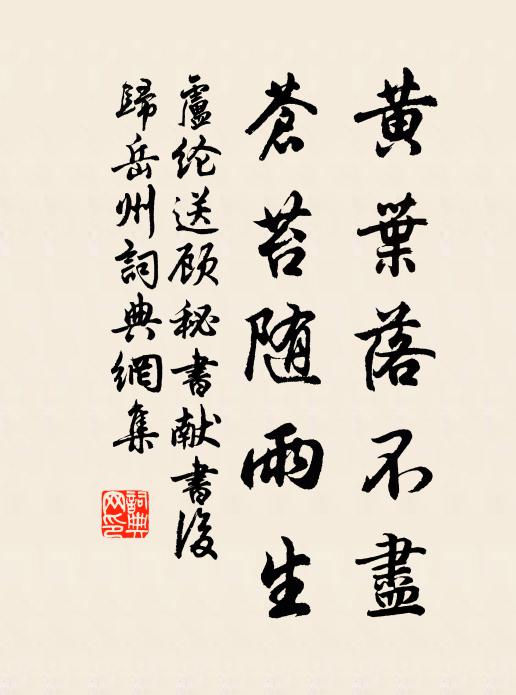 黄葉落不盡
蒼苔随雨生
盧纶送顾秘書献書後
歸岳州詞典網集
詞典网印